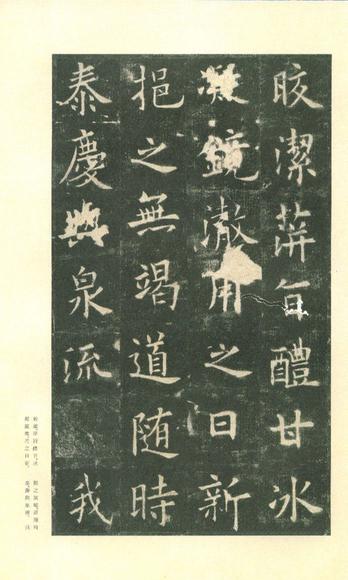 晈潔蓱旨醴甘冰
凝鏡澈用之日新
挹之無竭道随時
泰慶與泉流 我